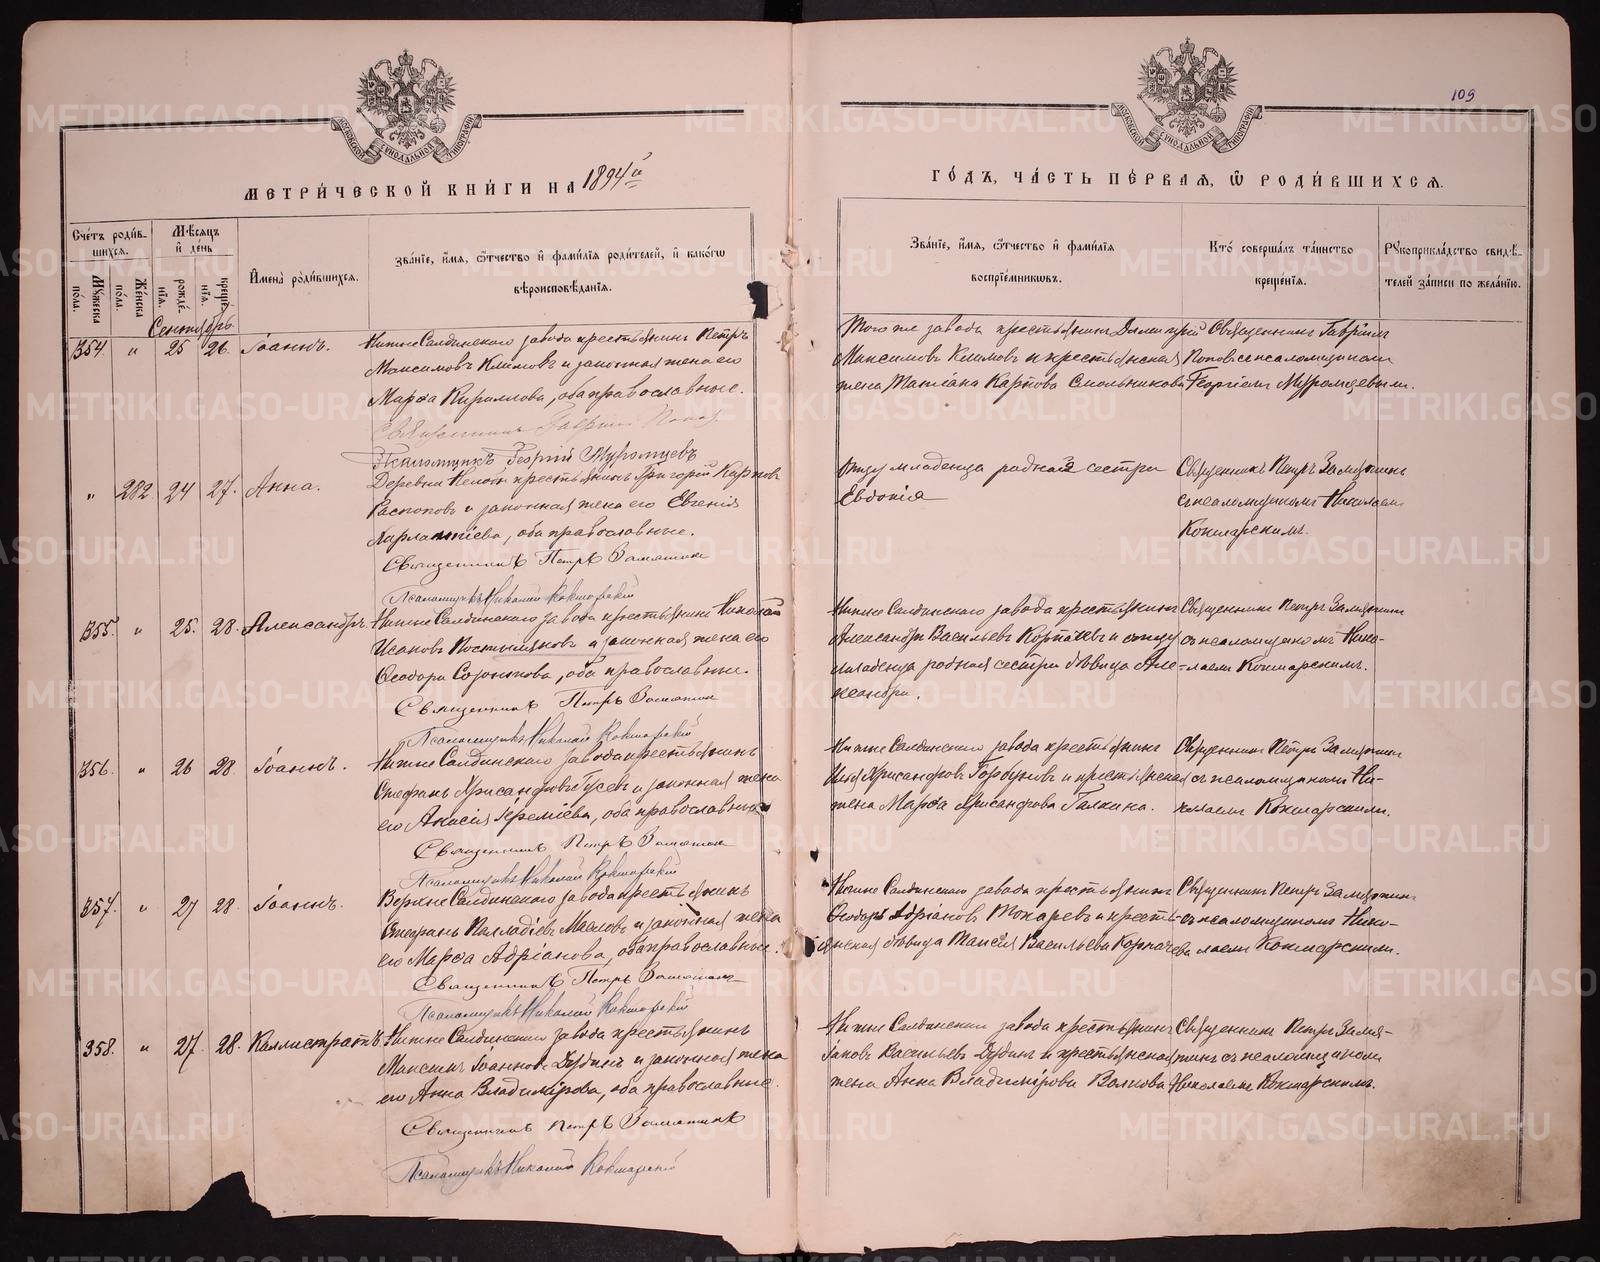 109
МЕТРИ́ЧЕСКОЙ КНИ́ГИ НА 1894й
ГО́ДЪ, ЧА́СТЬ ПЕ́РВАЯ, Ѡ РОДИ́ВШИХСЯ.
Сче́тъ роди́в-
шихся.
Мѣ́сяцъ
и де́нь
Мꙋ́жеска по́ла.
Же́нска по́ла.
рожде́-
нїя.
креще́-
нїя.
И҆мена̀ роди́вшихся.
Зва́нїе, и҆́мя, ѻ҆́тчество и҆ фами́лїя роди́телей, и҆ како́гѡ
вѣроисповѣ́данїя.
Зва́нїе, и҆́мя, ѻ҆́тчество и҆ фами́лїя
воспрїе́мниковъ.
Кто̀ соверша́лъ та́инство
креще́нїя.
Рꙋкоприкла́дство свидѣ́-
телей за́писи по жела́нїю.
Сентябрь.
354. " 25 26. Іоаннъ.
Нижне Салдинскаго завода крестьянинъ Петръ
Максимовъ Климовъ и законная жена его
Марѳа Кириллова, оба православные.
Священникъ Гавріилъ Поповъ
Псаломщикъ Георгій Муромцевъ
Того же завода крестьянинъ Димитрій
Максимовъ Климовъ и крестьянская
жена Татіана Карпова Смольникова
Священникъ Гавріилъ
Поповъ с псаломщикомъ
Георгіемъ Муромцевымъ.
" 282 24 27. Анна.
Деревни крестьянинъ Григорій Карповъ
и законная жена его Евгенія
Харлампіева, оба православные.
Священникъ Петръ Замятин
Псаломщикъ Николай Кокшарскій
отцу младенца родная сестра
Евдокія
Священникъ Петръ Замятинъ
съ псаломщикомъ Николаемъ
Кокшарскимъ.
355. " 25. 28. Александръ.
Нижне Салдинскаго завода крестьянинъ Николай
Исаковъ и законная жена его
Ѳеодора Созонтова, оба православные.
Священникъ Петръ Замятин
Псаломщикъ Николай Кокшарскій
Нижне Салдинскаго завода крестьянинъ
Александръ Васильевъ и отцу
младенца родная сестра дѣвица Але-
ксандра.
Священникъ Петръ Замятинъ
съ псаломщикомъ Нико-
лаемъ Кокшарскимъ.
356. " 26 28. Іоаннъ.
Нижне Салдинскаго завода крестьянинъ
Стефанъ Хрисанфовъ Гусевъ и законная жена
его Акисія Іереміева, оба православные
Священникъ Петръ Замятин
Псаломщикъ Николай Кокшарскій
Нижне Салдинскаго завода крестьянинъ
Илья Хрисанфовъ Горбуновъ и крестьянская
жена Марѳа Хрисанфова Галкина.
Священникъ Петръ Замятинъ
съ псаломщикомъ Ни-
колаемъ Кокшарскимъ.
357. " 27 28. Іоаннъ.
Верхне Салдинскаго завода крестьянинъ
Стефанъ Палладіевъ Масловъ и законная жена
его Марѳа Адріанова, оба православные.
Священникъ Петръ Замятин
Псаломщикъ Николай Кокшарскій
Нижне Салдинскаго завода крестьянинъ
Ѳеодоръ Адріановъ Токаревъ и кресть-
янская дѣвица Таисія Васильева Корпачева
Священникъ Петръ Замятинъ
съ псаломщикомъ Нико-
лаемъ Кокшарскимъ.
358. " 27. 28. Каллистратъ
Нижне Салдинскаго завода крестьянинъ
Максимъ Іоанновъ Дудинъ и законная жена
его Анна Владимірова, оба православные.
Священникъ Петръ Замятинъ
Псаломщикъ Николай Кокшарскій
Нижне Салдинскаго завода крестьянинъ
Іаковъ Васильевъ Дудинъ и крестьянская
жена Анна Владимірова Волкова
Священникъ Петръ Замя-
тинъ съ псаломщикомъ
Николаемъ Кокшарскимъ.
METRIKI.GASO-URAL.RU